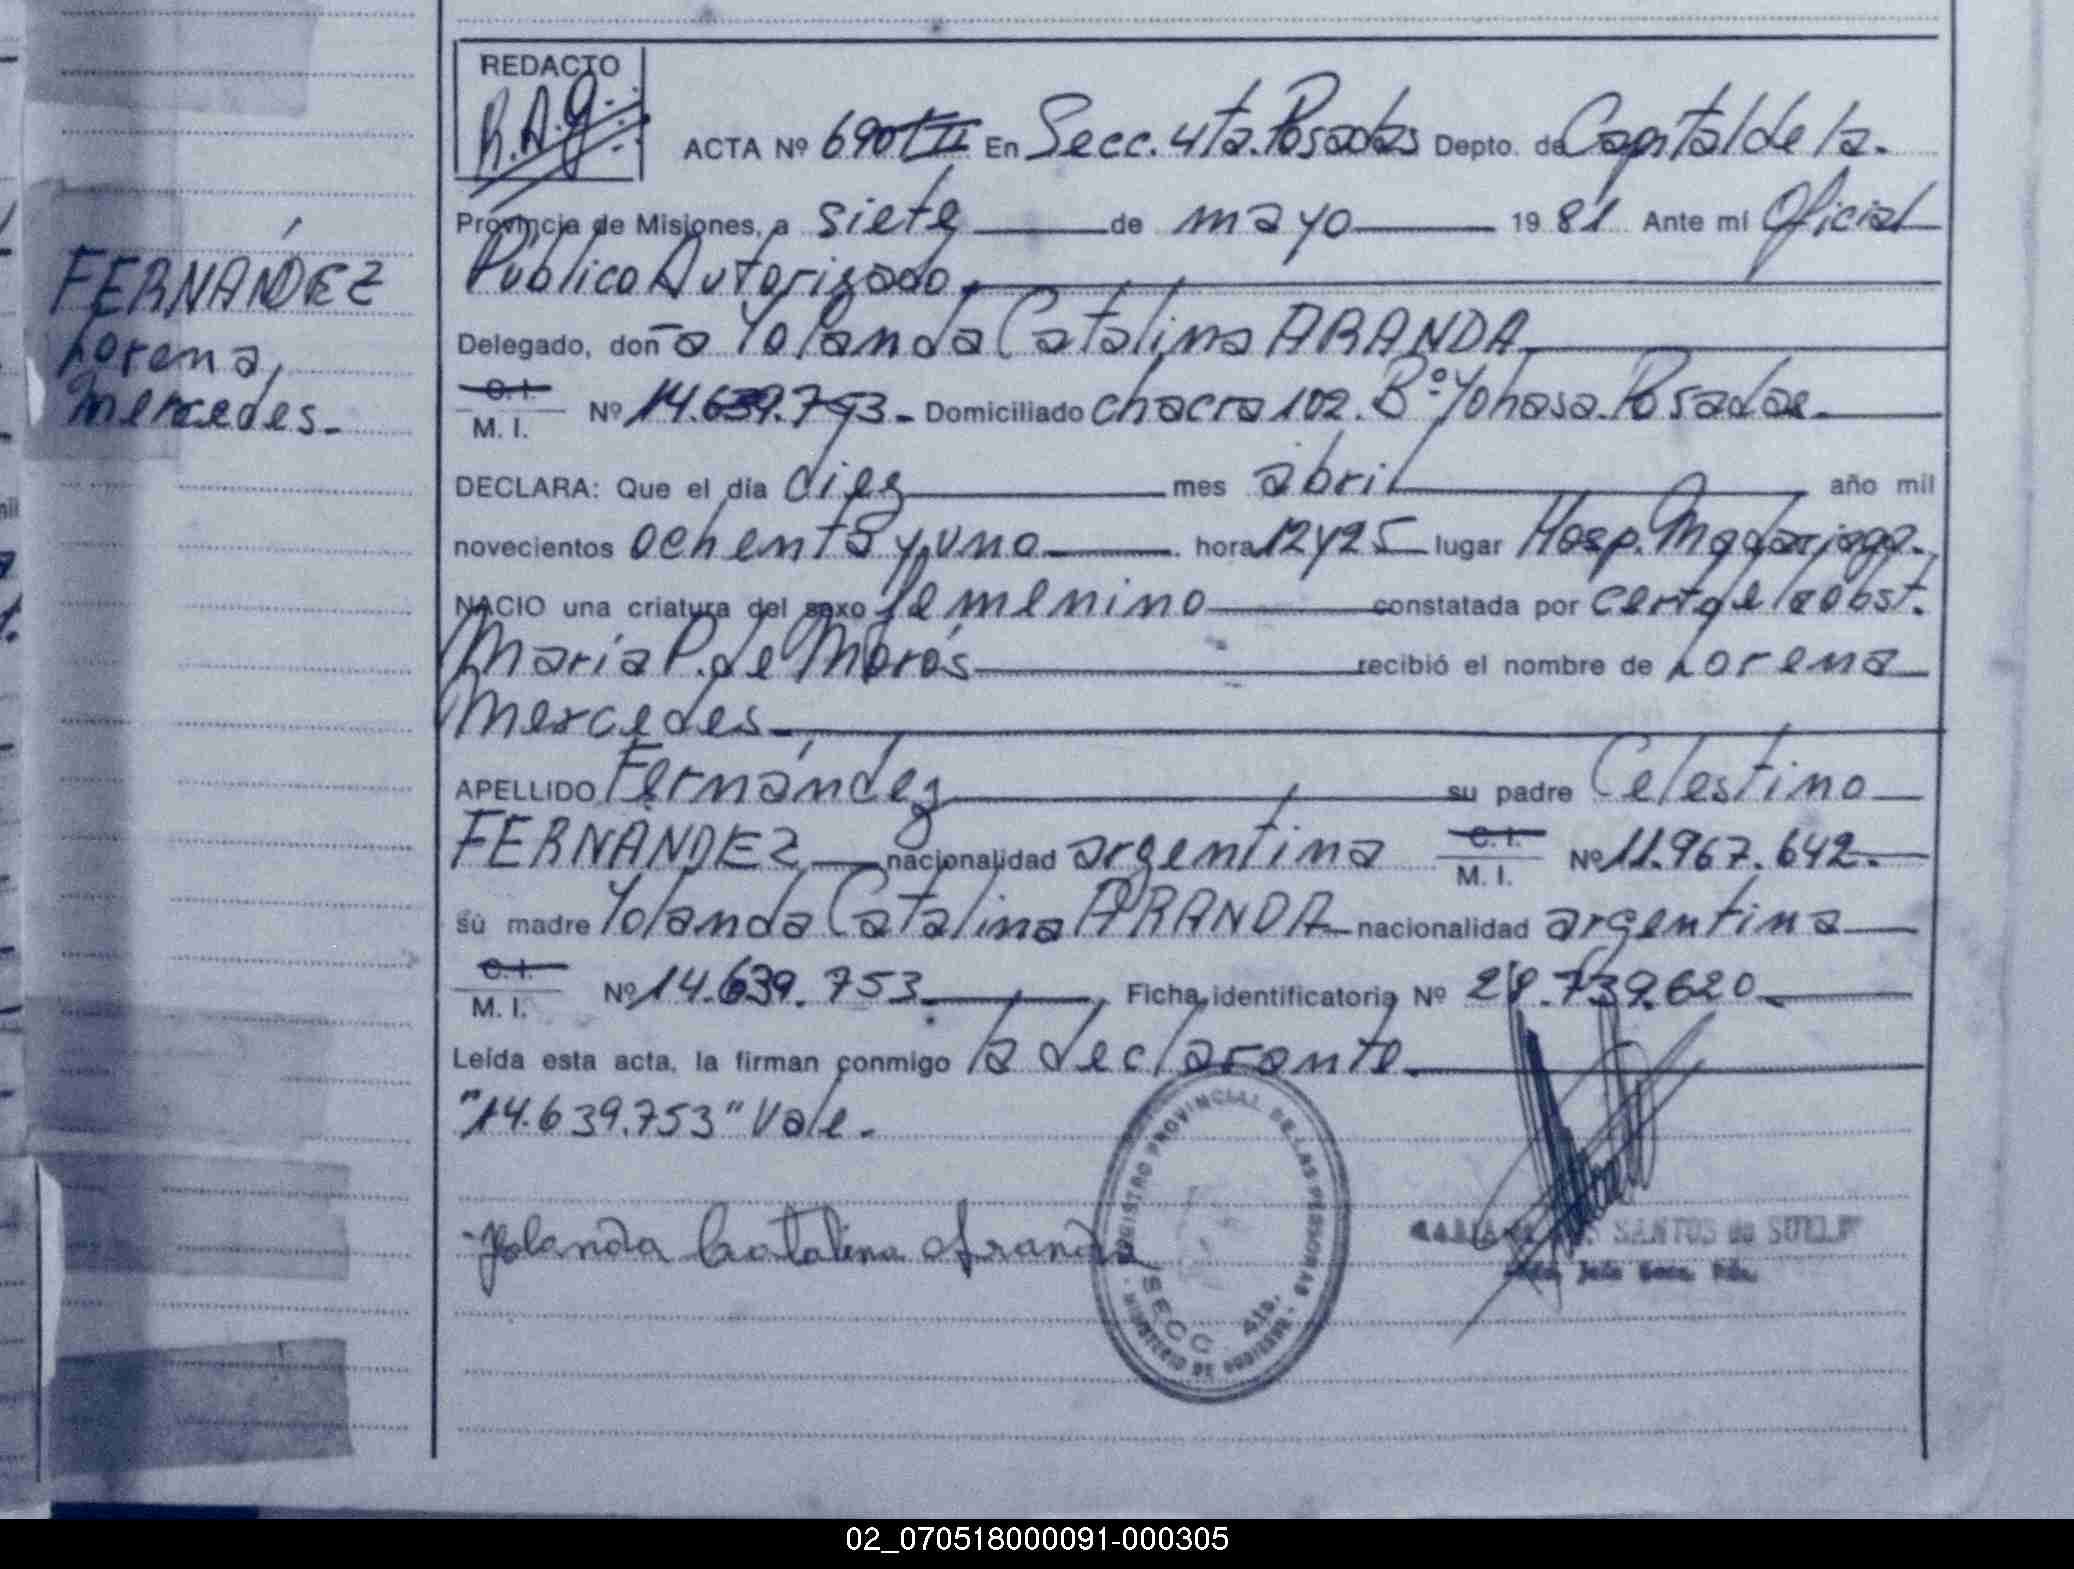 REDACTO
R.A.G.
ACTA Nº 690 tII En Secc. 4ta. Posadas Depto. de Capital de la.
Provincia de Misiones, a siete de mayo 1981 Ante mí Oficial
Público Autorizado.
Delegado, doña Yolanda Catalina ARANDA
C. I.
M. I. Nº 14.639.793.- Domiciliado chacra 102. Bº. Yohasa. Posadas.
DECLARA: Que el día diez mes abril año mil
novecientos ochenta y uno hora 12 y 25 lugar Hosp. Madariaga.
NACIO una criatura del sexo femenino constatada por cert de la obst.
María P. de Morós recibió el nombre de Lorena
Mercedes.
APELLIDO Fernández su padre Celestino
FERNÁNDEZ nacionalidad argentina C. I. M. I. Nº 11.967.642.-
su madre Yolanda Catalina ARANDA nacionalidad argentina
C. I.
M. I. Nº 14.639.753. Ficha identificatoria Nº 28.739.620.
Leída esta acta, la firman conmigo la declarante.
"14.639.753" Vale.-
Yolanda Catalina Aranda
REGISTRO PROVINCIAL DE LAS PERSONAS
SECC. 4ta.
MINISTERIO DE GOBIERNO
SANTOS de
FERNÁNDEZ
Lorena,
Mercedes.-
02_070518000091-000305